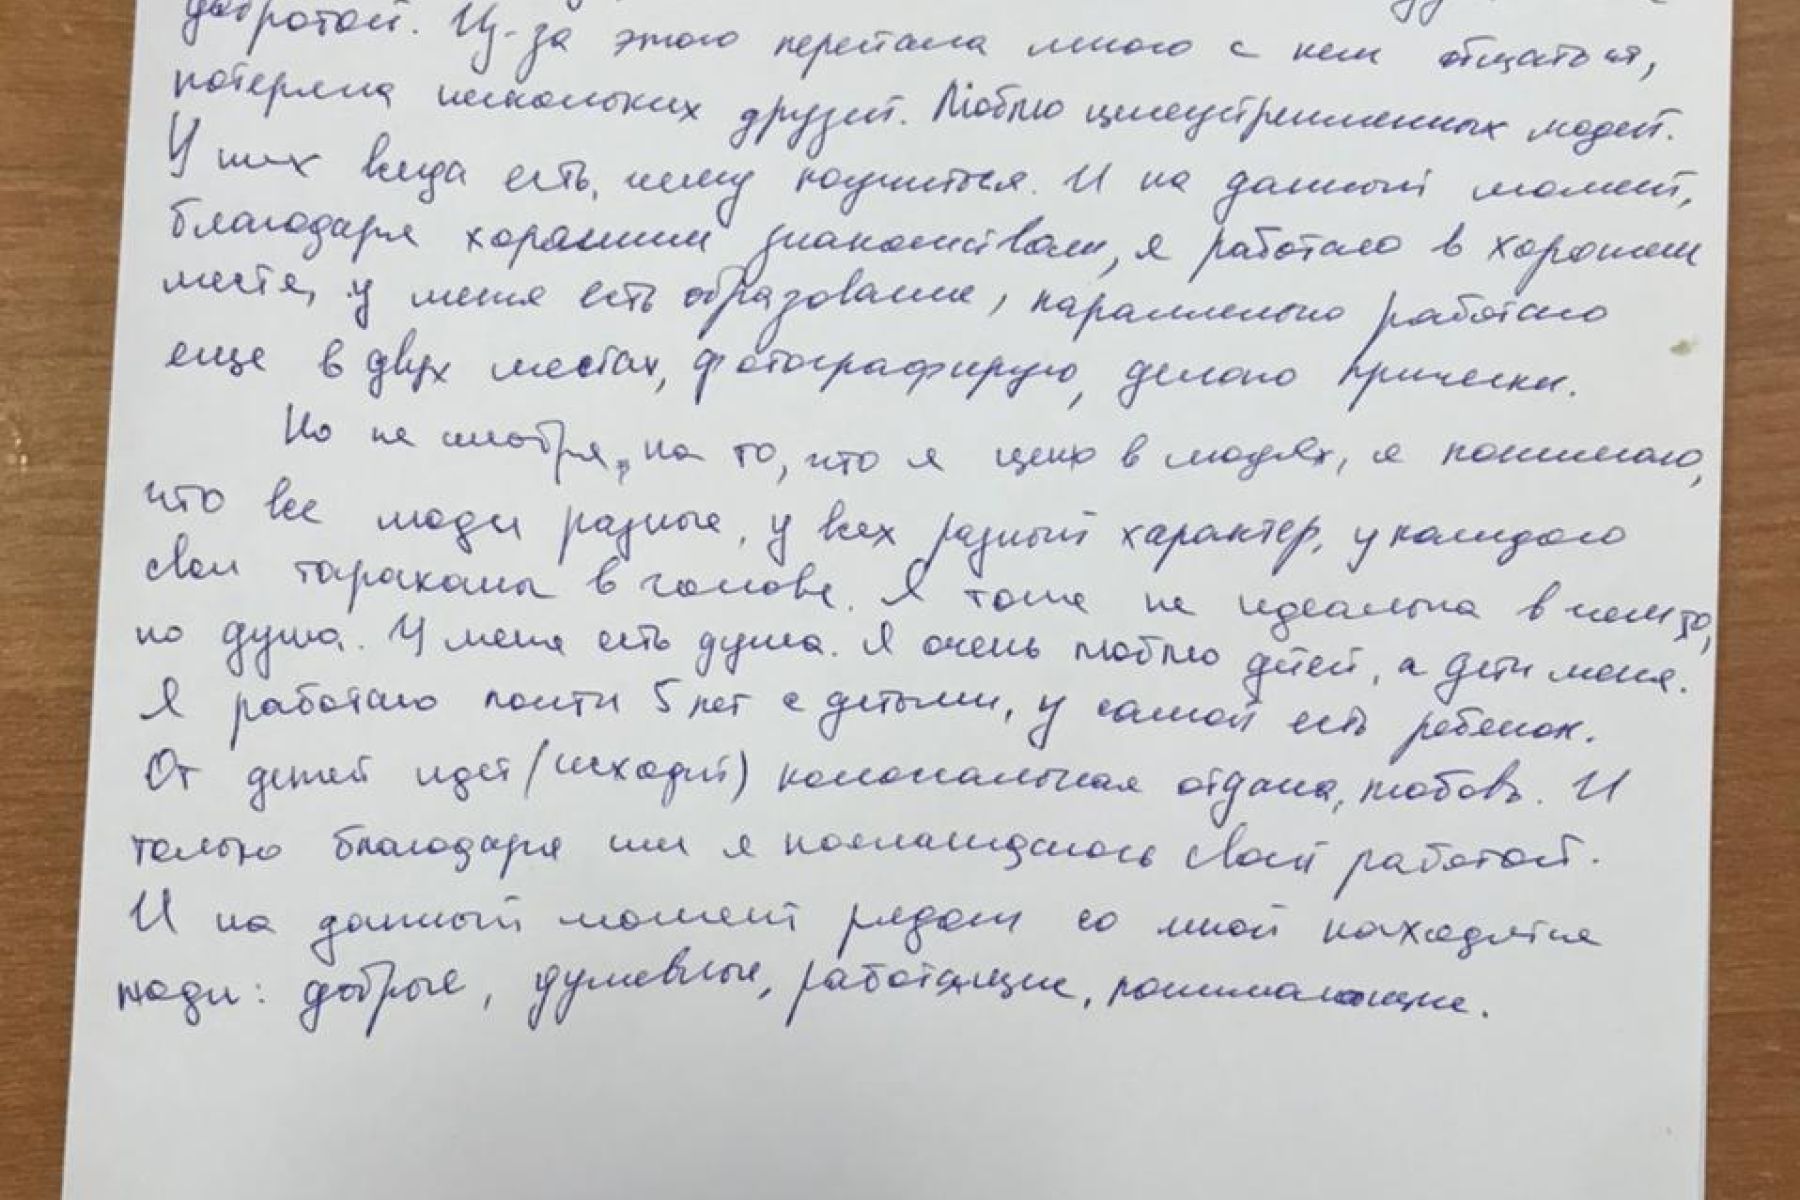 добротой. Из-за этого перестала много с кем общаться,
потеряла нескольких друзей. Люблю целеустремленных людей.
У них всегда есть, чему научиться. И на данный момент,
благодаря хорошим знакомствам, я работаю в хорошем
месте, у меня есть образование, параллельно работаю
еще в двух местах, фотографирую, делаю прически.
Но не смотря, на то, что я ценю в людях, я понимаю,
что все люди разные, у всех разный характер, у каждого
свои тараканы в голове. Я тоже не идеальна в чем то,
но душа. У меня есть душа. Я очень люблю детей, а дети меня.
Я работаю почти 5 лет с детьми, у самой есть ребенок.
От детей идет (исходит) колоссальная отдача, любовь. И
только благодаря им я наслаждаюсь своей работой.
И на данный момент рядом со мной находятся
люди: добрые, душевные, работящие, понимающие.